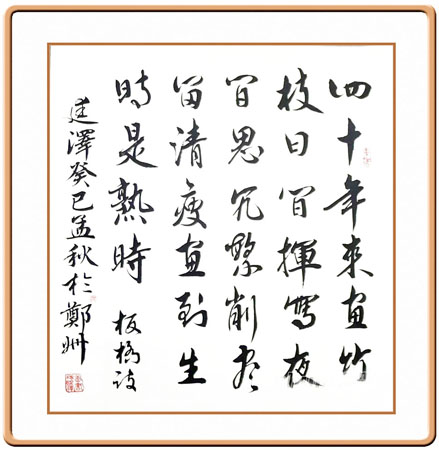 四十年來畫竹
枝日間揮寫夜
間思冗繁削盡
留清瘦畫到生
時是熟時 板橋詩
廷澤癸巳孟秋於鄭州